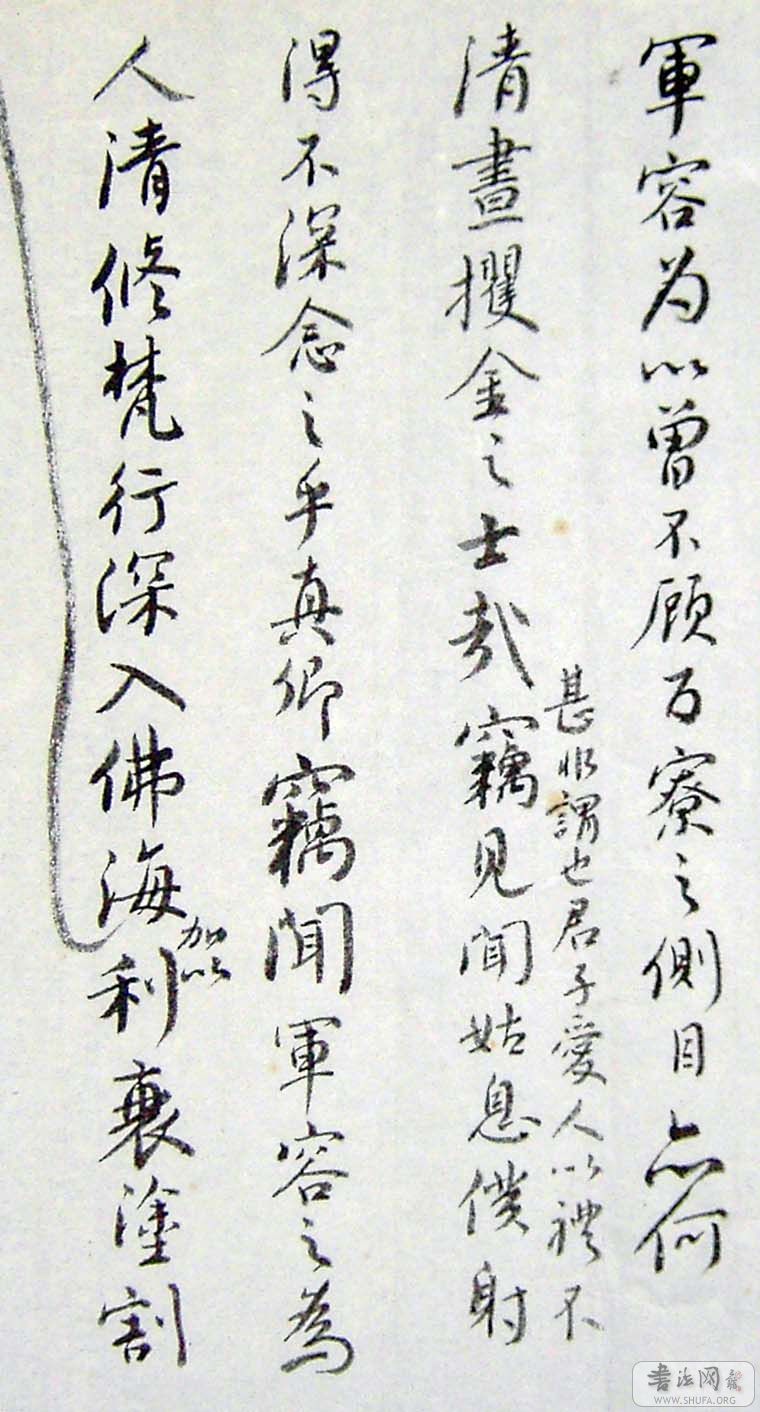 軍容为心曾不顾百寮之側目亦何
清晝攫金之士哉竊見聞姑息僕射
甚非謂也君子愛人以禮不
得不深念之乎真卿竊聞軍容之為
人清修梵行深入佛海利衰塗割
加以
書法网
WWW.SHUFA.ORG